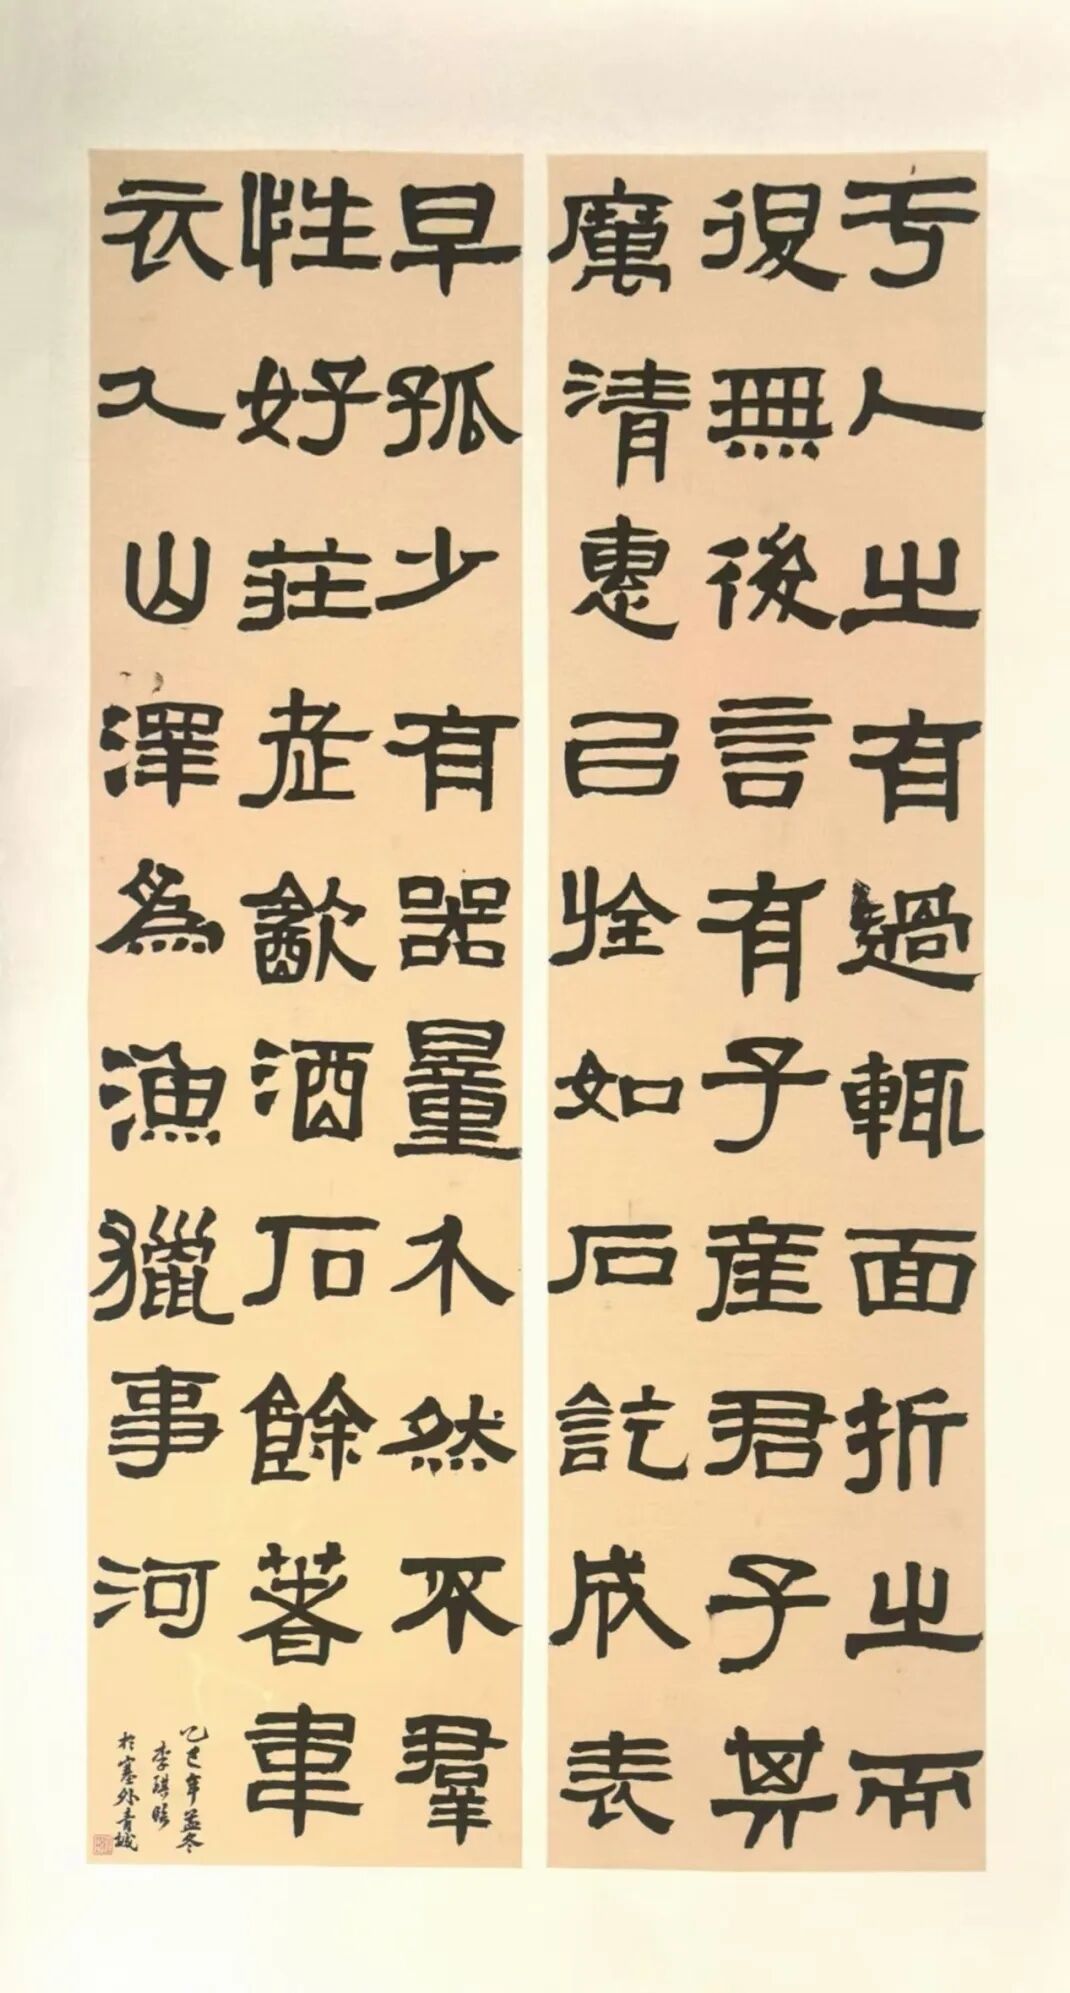 于人之有過輒面折之而
退無後言有子產君子其
厲清惠己如石訖成表
早孤少有器量介然不羣
性好莊老飲酒石餘著韋
衣入山澤為漁獵事河
乙巳年孟冬
李琪
於塞外青城